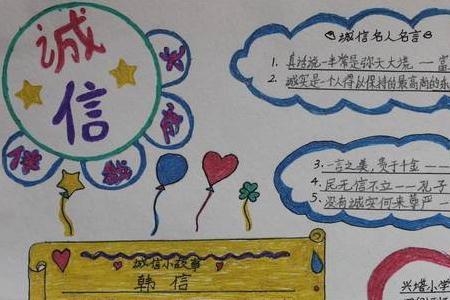 诚
信
诚信名人名言
1. 真话说一半常是弥天大谎 — 富
2. 诚实是一个人得以保持的最高尚的东
3. 一言之美,贵于千金 ——
4. 民无信不立——孔子
5. 没有诚实何来尊严 —
诚信小故事
韩信
兴塔小学